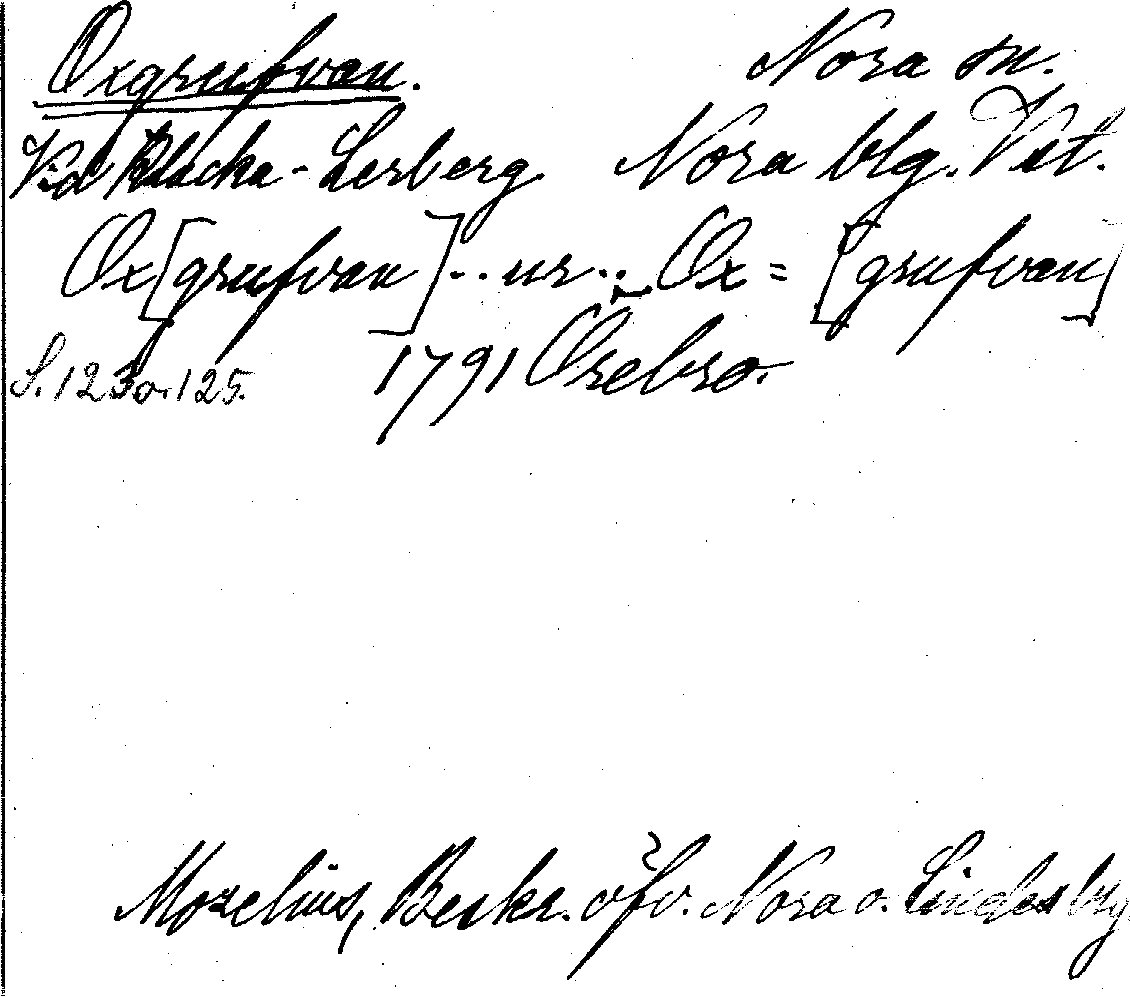 Oxgrufvan. Nora sn.
Vid Blacka-Lerberg Nora blg. Vst.
Ox[grufvan]..ur.. Ox=[grufvan]
S. 123 o. 125. 1791 Örebro.
Morelius, Beskr. öfv. Nora o. Lindes brg